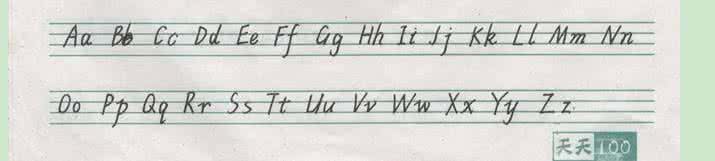 Aa Bb Cc Dd Ee Ff Gg Hh Ii Jj Kk Ll Mm Nn
Oo Pp Qq Rr Ss Tt Uu Vv Ww Xx Yy Zz
天天100